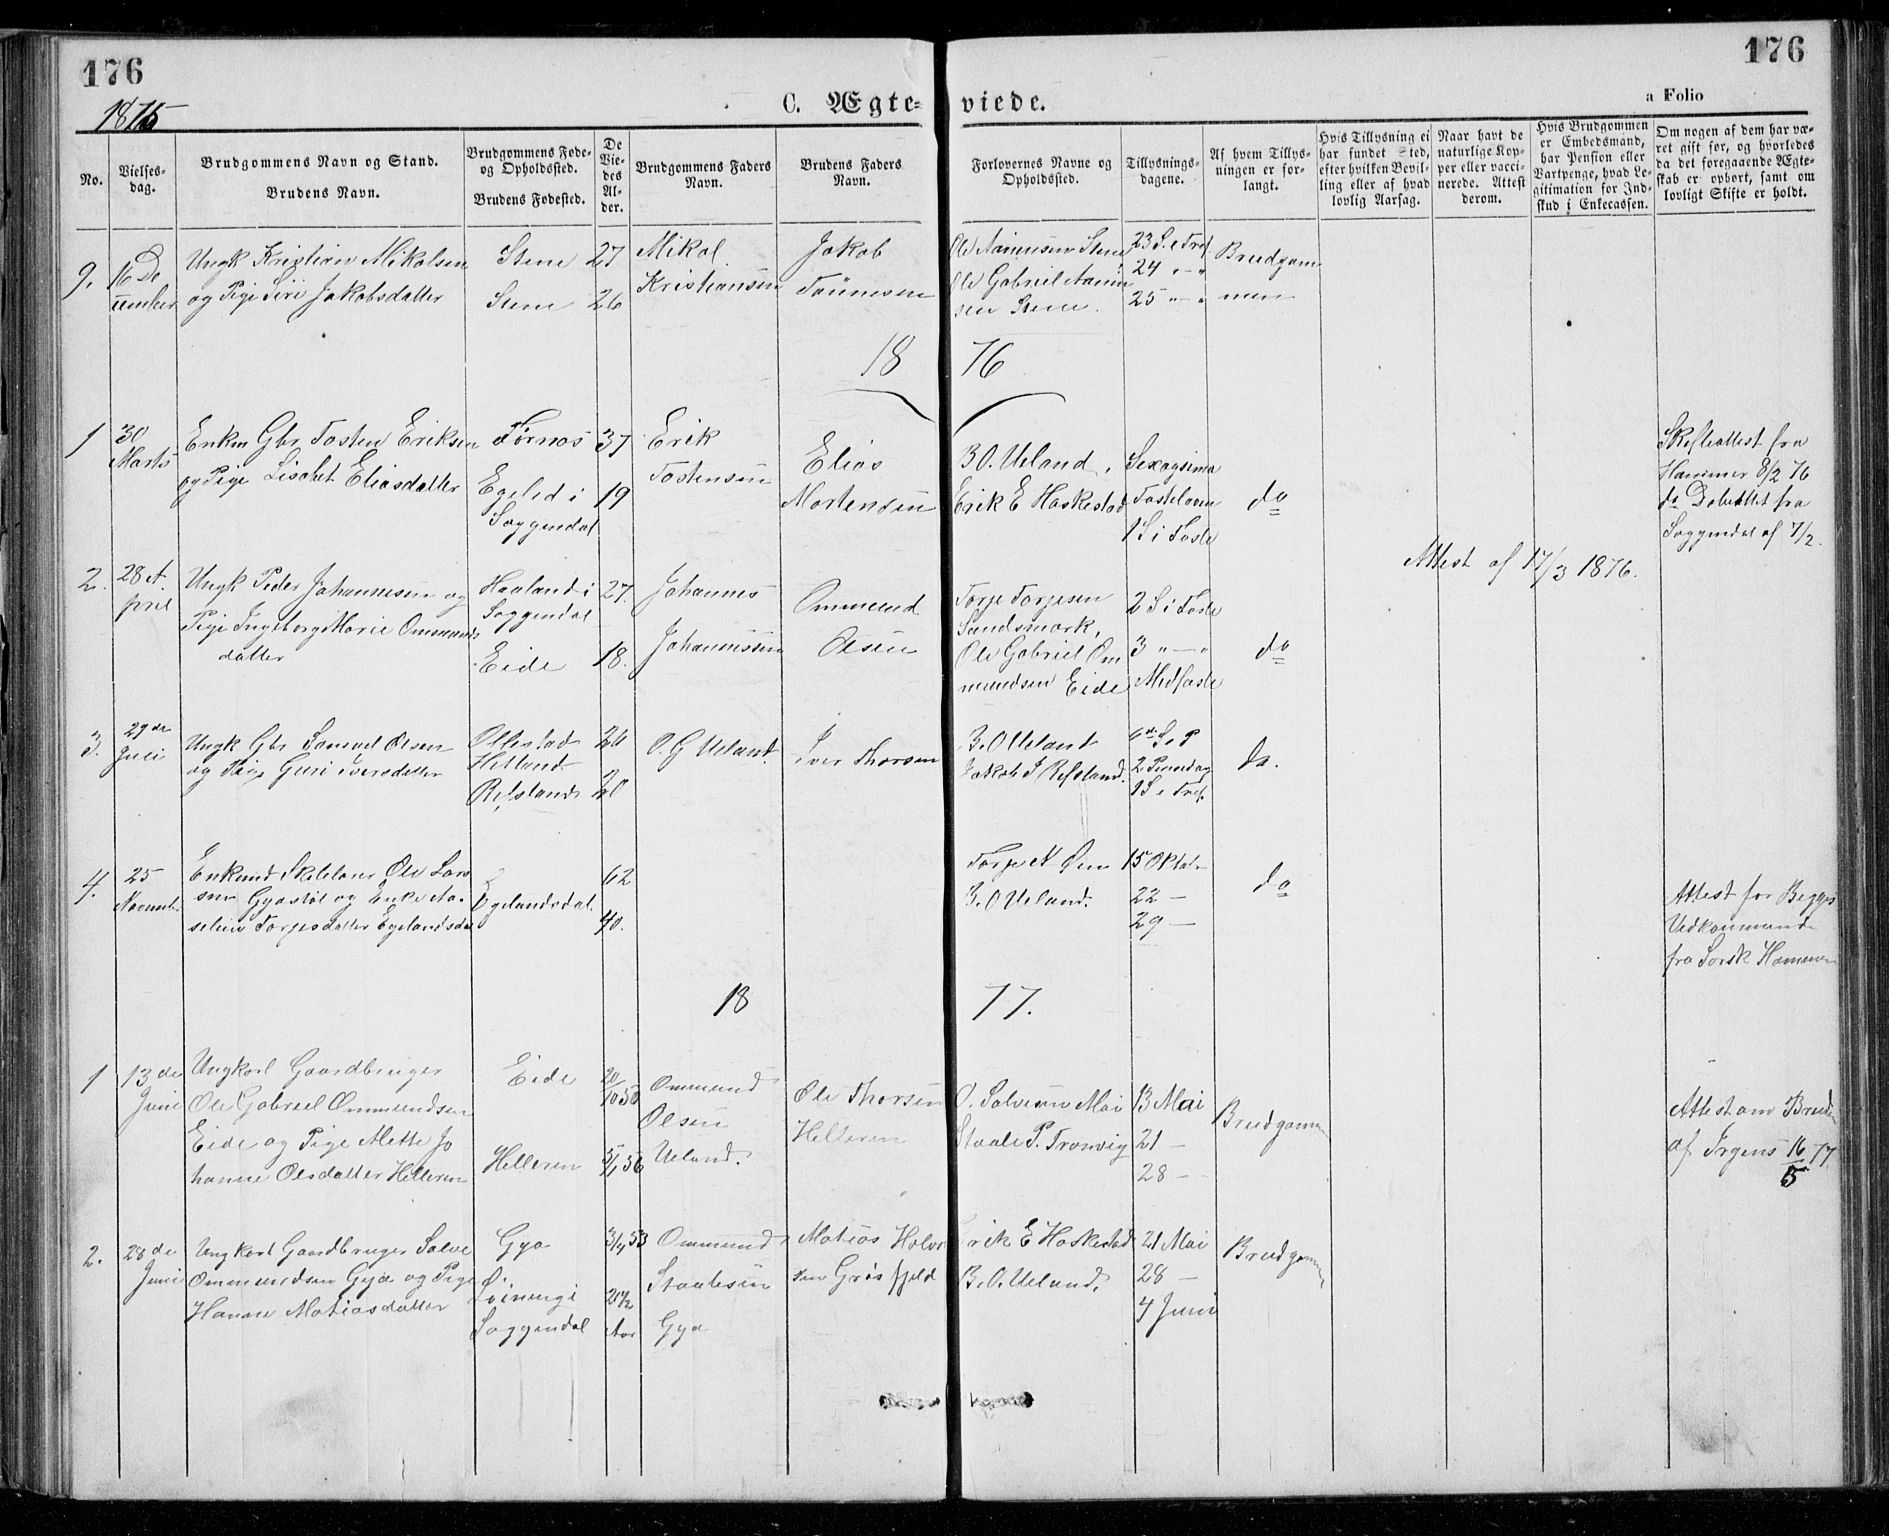 176
176
1875
C. Ægte-
viede.
a Folio
No.
Vielses-
dag.
Brudgommens Navn og Stand.
Brudens Navn.
Brudgommens Føde-
og Opholdssted.
Brudens Fødested.
De
Vie-
des
Al-
der.
Brudgommens Faders
Navn.
Brudens Faders
Navn.
Forlovernes Navne og
Opholdssted.
Tillysnings-
dagene.
Af hvem Tillys-
ningen er for-
langt.
Hvis Tillysning ei
har fundet Sted,
efter hvilken Bevil-
ling eller af hvad
lovlig Aarsag.
Naar havt de
naturlige Kop-
per eller vacci-
nerede. Attest
derom.
Hvis Brudgommen
er Embedsmand,
har Pension eller
Vartpenge, hvad Le-
gitimation for Ind-
skud i Enkecassen.
Om nogen af dem har væ-
ret gift før, og hvorledes
da det foregaaende Ægte-
skab er ophørt, samt om
lovligt Skifte er holdt.
9.
16 De
cember
Ungk Kristian Mikalsen
og Pige Siri Jakobsdatter
Stene
Stene
27
26
Mikal
Kristiansen
Jakob
Tønnesen
Ole Aanensen Stene
Ole Gabriel Aanen
sen Stene.
23 S. e Tref
24 " — "
25 " — "
Brudgom
men
18 76
1
30
Marts
Enkm Gbr. Tosten Eriksen
og Pige Lisabet Eliasdatter
Tørnos
Egeled i
Soggendal
37
19
Erik
Tostensen
Elias
Mortensen
B O. Ueland,
Erik E Haskestad
Sexagsima
Fastelaven
1 S i Faste
do
Skifteattest fra
Hammer 8/2 76
do Debattet fra
Soggendal af 7/2.
2.
28 A
pril
Ungk Peder Johannesen og
Pige Ingeborg Marie Ommunds
datter
Haaland i
Soggendal
Eide
27.
18.
Johannes
Johannessen
Ommund
Olsen
Torje Torjesen
Sandsmark,
Ole Gabriel Om
mundsen Eide
2 S i Faste
3 " — "
Midfaste
do
Attest af 17/3 1876.
3.
29de
Juli
Ungk Gbr Samuel Olsen
og Pige Guri Iversdatter
Ollestad
Hetland
Refsland
26
20
O. G Ueland.
Iver Thorsen
B. O Ueland
Jakob I Refsland.
6te S. e P
2 Pinsedag
1 S e Tref.
do.
4.
25
Novemb.
Enkmd Skoleholder Ole Lar
sen Gyastøl og Enke Aa-
selene Torjesdatter Egelandsdal
Egelandsdal.
62
40.
Torje N Øen
B. O Ueland.
15 Oktob.
22 —
29 —
do
Attest for Begges
Vedkommende
fra Sorsk Hammer
18 77.
1
13 de
Juni
Ungkarl Gaardbruger
Ole Gabriel Ommundsen
Eide og Pige Mette Jo
hanne Olsdatter Helleren
Eide
Helleren
20/10 50
5/1 56
Ommund
Olsen
Ueland.
Ole Thorsen
Helleren
O. Salvesen Mai
Staale P. Tronvig
13 Mai
21 —
28 —
Brudgomen
Attest om Bruden
af Irgens 16/5 77.
2.
28 de
Juni
Ungkarl Gaardbruger Salve
Ommundsen Gya og Pige
Hanne Matiasdatter
Gya
Soggendal
3/4 53
20 1/2
Aar
Ommund
Staalesen
Gya
Matias Halvor
sen Gråsfjeld
Erik E Haskestad
B. O. Ueland.
21 Mai
28 —
4 Juni
Brudgomen